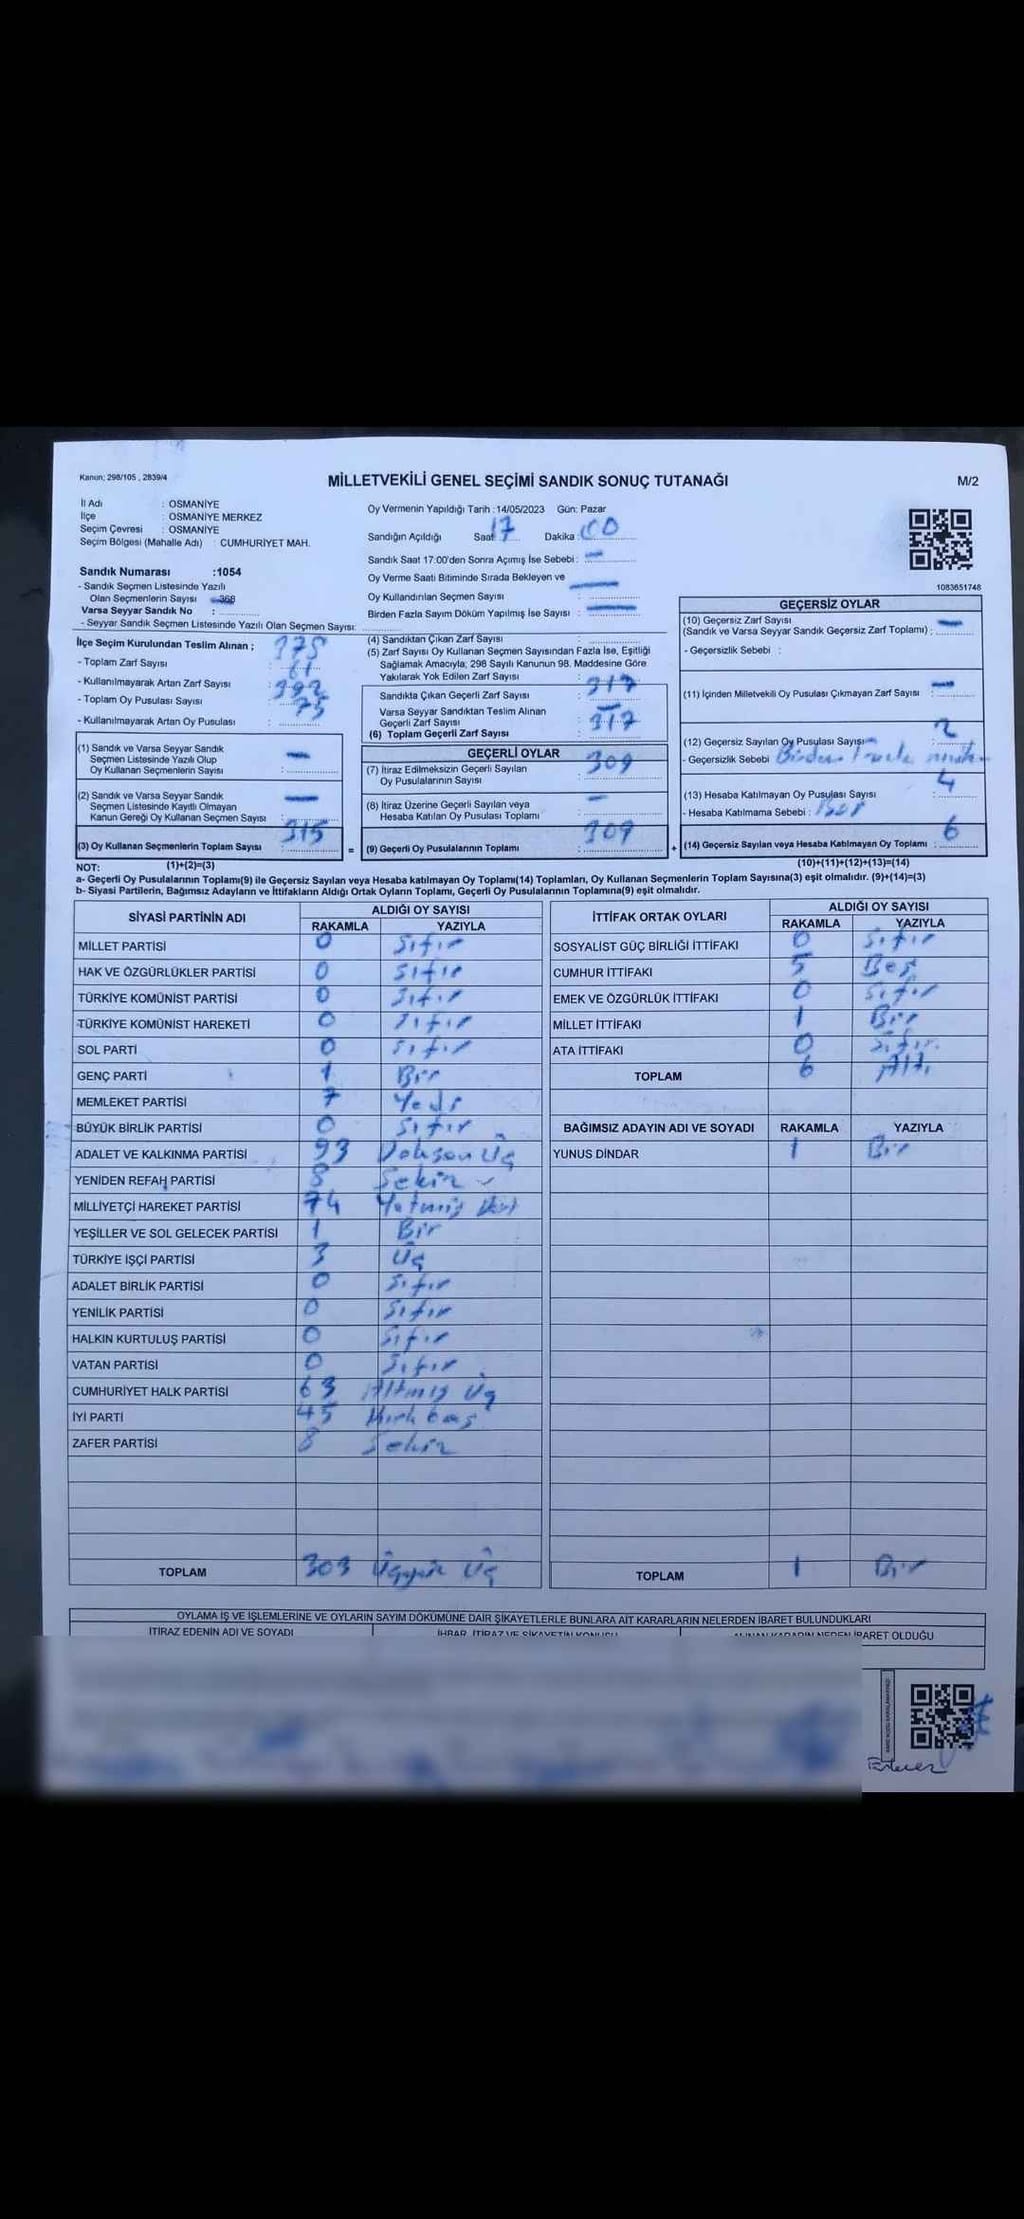 Kanun; 298/105 , 2839/4
MİLLETVEKİLİ GENEL SEÇİMİ SANDIK SONUÇ TUTANAĞI
M/2
İl Adı : OSMANİYE
İlçe : OSMANİYE MERKEZ
Seçim Çevresi : OSMANİYE
Seçim Bölgesi (Mahalle Adı) : CUMHURİYET MAH.
Sandık Numarası :1054
- Sandık Seçmen Listesinde Yazılı
Olan Seçmenlerin Sayısı 368
Varsa Seyyar Sandık No :
- Seyyar Sandık Seçmen Listesinde Yazılı Olan Seçmen Sayısı:
Oy Vermenin Yapıldığı Tarih :14/05/2023 Gün: Pazar
Sandığın Açıldığı Saat 17 Dakika : 00
Sandık Saat 17:00'den Sonra Açımış İse Sebebi :
Oy Verme Saati Bitiminde Sırada Bekleyen ve
Oy Kullandırılan Seçmen Sayısı :
Birden Fazla Sayım Döküm Yapılmış İse Sayısı :
1083651748
İlçe Seçim Kurulundan Teslim Alınan ;
- Toplam Zarf Sayısı : 375
- Kullanılmayarak Artan Zarf Sayısı : 61
- Toplam Oy Pusulası Sayısı : 392
- Kullanılmayarak Artan Oy Pusulası : 75
(1) Sandık ve Varsa Seyyar Sandık
Seçmen Listesinde Yazılı Olup
Oy Kullanan Seçmenlerin Sayısı :
(2) Sandık ve Varsa Seyyar Sandık
Seçmen Listesinde Kayıtlı Olmayan
Kanun Gereği Oy Kullanan Seçmen Sayısı :
(3) Oy Kullanan Seçmenlerin Toplam Sayısı : 315
(4) Sandıktan Çıkan Zarf Sayısı :
(5) Zarf Sayısı Oy Kullanan Seçmen Sayısından Fazla İse, Eşitliği
Sağlamak Amacıyla; 298 Sayılı Kanunun 98. Maddesine Göre
Yakılarak Yok Edilen Zarf Sayısı :
Sandıkta Çıkan Geçerli Zarf Sayısı : 317
Varsa Seyyar Sandıktan Teslim Alınan
Geçerli Zarf Sayısı :
(6) Toplam Geçerli Zarf Sayısı : 317
GEÇERLİ OYLAR
(7) İtiraz Edilmeksizin Geçerli Sayılan
Oy Pusulalarının Sayısı : 309
(8) İtiraz Üzerine Geçerli Sayılan veya
Hesaba Katılan Oy Pusulası Toplamı :
= (9) Geçerli Oy Pusulalarının Toplamı : 309
GEÇERSİZ OYLAR
(10) Geçersiz Zarf Sayısı
(Sandık ve Varsa Seyyar Sandık Geçersiz Zarf Toplamı) :
- Geçersizlik Sebebi :
(11) İçinden Milletvekili Oy Pusulası Çıkmayan Zarf Sayısı :
(12) Geçersiz Sayılan Oy Pusulası Sayısı : 2
- Geçersizlik Sebebi Birden Fazla
(13) Hesaba Katılmayan Oy Pusulası Sayısı : 4
- Hesaba Katılmama Sebebi : Boş
+ (14) Geçersiz Sayılan veya Hesaba Katılmayan Oy Toplamı : 6
NOT: (1)+(2)=(3) (10)+(11)+(12)+(13)=(14)
a- Geçerli Oy Pusulalarının Toplamı(9) ile Geçersiz Sayılan veya Hesaba katılmayan Oy Toplamı(14) Toplamları, Oy Kullanan Seçmenlerin Toplam Sayısına(3) eşit olmalıdır. (9)+(14)=(3)
b- Siyasi Partilerin, Bağımsız Adayların ve İttifakların Aldığı Ortak Oyların Toplamı, Geçerli Oy Pusulalarının Toplamına(9) eşit olmalıdır.
SİYASİ PARTİNİN ADI ALDIĞI OY SAYISI
RAKAMLA YAZIYLA
MİLLET PARTİSİ 0 Sıfır
HAK VE ÖZGÜRLÜKLER PARTİSİ 0 Sıfır
TÜRKİYE KOMÜNİST PARTİSİ 0 Sıfır
TÜRKİYE KOMÜNİST HAREKETİ 0 Sıfır
SOL PARTİ 0 Sıfır
GENÇ PARTİ 1 Bir
MEMLEKET PARTİSİ 7 Yedi
BÜYÜK BİRLİK PARTİSİ 0 Sıfır
ADALET VE KALKINMA PARTİSİ 93 Doksan Üç
YENİDEN REFAH PARTİSİ 8 Sekiz
MİLLİYETÇİ HAREKET PARTİSİ 74 Yetmiş Dört
YEŞİLLER VE SOL GELECEK PARTİSİ 1 Bir
TÜRKİYE İŞÇİ PARTİSİ 3 Üç
ADALET BİRLİK PARTİSİ 0 Sıfır
YENİLİK PARTİSİ 0 Sıfır
HALKIN KURTULUŞ PARTİSİ 0 Sıfır
VATAN PARTİSİ 0 Sıfır
CUMHURİYET HALK PARTİSİ 63 Altmış Üç
İYİ PARTİ 45 Kırk beş
ZAFER PARTİSİ 8 Sekiz
TOPLAM 303 Üçyüz Üç
İTTİFAK ORTAK OYLARI ALDIĞI OY SAYISI
RAKAMLA YAZIYLA
SOSYALİST GÜÇ BİRLİĞİ İTTİFAKI 0 Sıfır
CUMHUR İTTİFAKI 5 Beş
EMEK VE ÖZGÜRLÜK İTTİFAKI 0 Sıfır
MİLLET İTTİFAKI 1 Bir
ATA İTTİFAKI 0 Sıfır
TOPLAM 6 Altı
BAĞIMSIZ ADAYIN ADI VE SOYADI RAKAMLA YAZIYLA
YUNUS DİNDAR 1 Bir
TOPLAM 1 Bir
OYLAMA İŞ VE İŞLEMLERİNE VE OYLARIN SAYIM DÖKÜMÜNE DAİR ŞİKAYETLERLE BUNLARA AİT KARARLARIN NELERDEN İBARET BULUNDUKLARI
İTİRAZ EDENİN ADI VE SOYADI İHBAR, İTİRAZ VE ŞİKAYETİN KONUSU ALINAN KARARIN NEDEN İBARET OLDUĞU